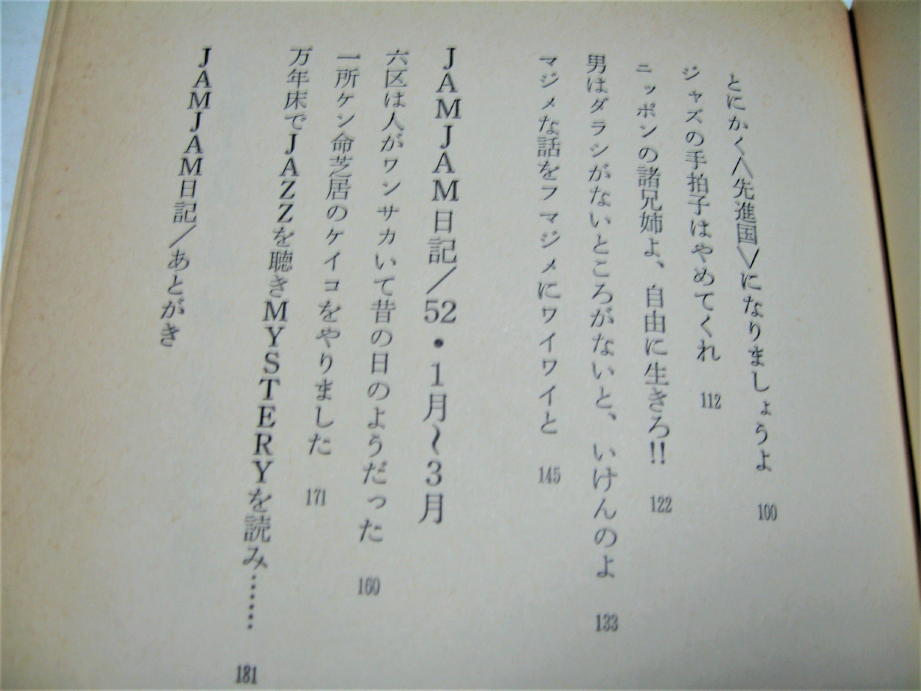 とにかく〈先進国〉になりましょうよ 100
ジャズの手拍子はやめてくれ 112
ニッポンの諸兄姉よ、自由に生きろ!! 122
男はダラシがないところがないと、いけんのよ 133
マジメな話をフマジメにワイワイと 145
JAMJAM日記/52・1月〜3月
六区は人がワンサカいて昔の日のようだった 160
一所ケン命芝居のケイコをやりました 171
万年床でJAZZを聴きMYSTERYを読み…… 181
JAMJAM日記/あとがき